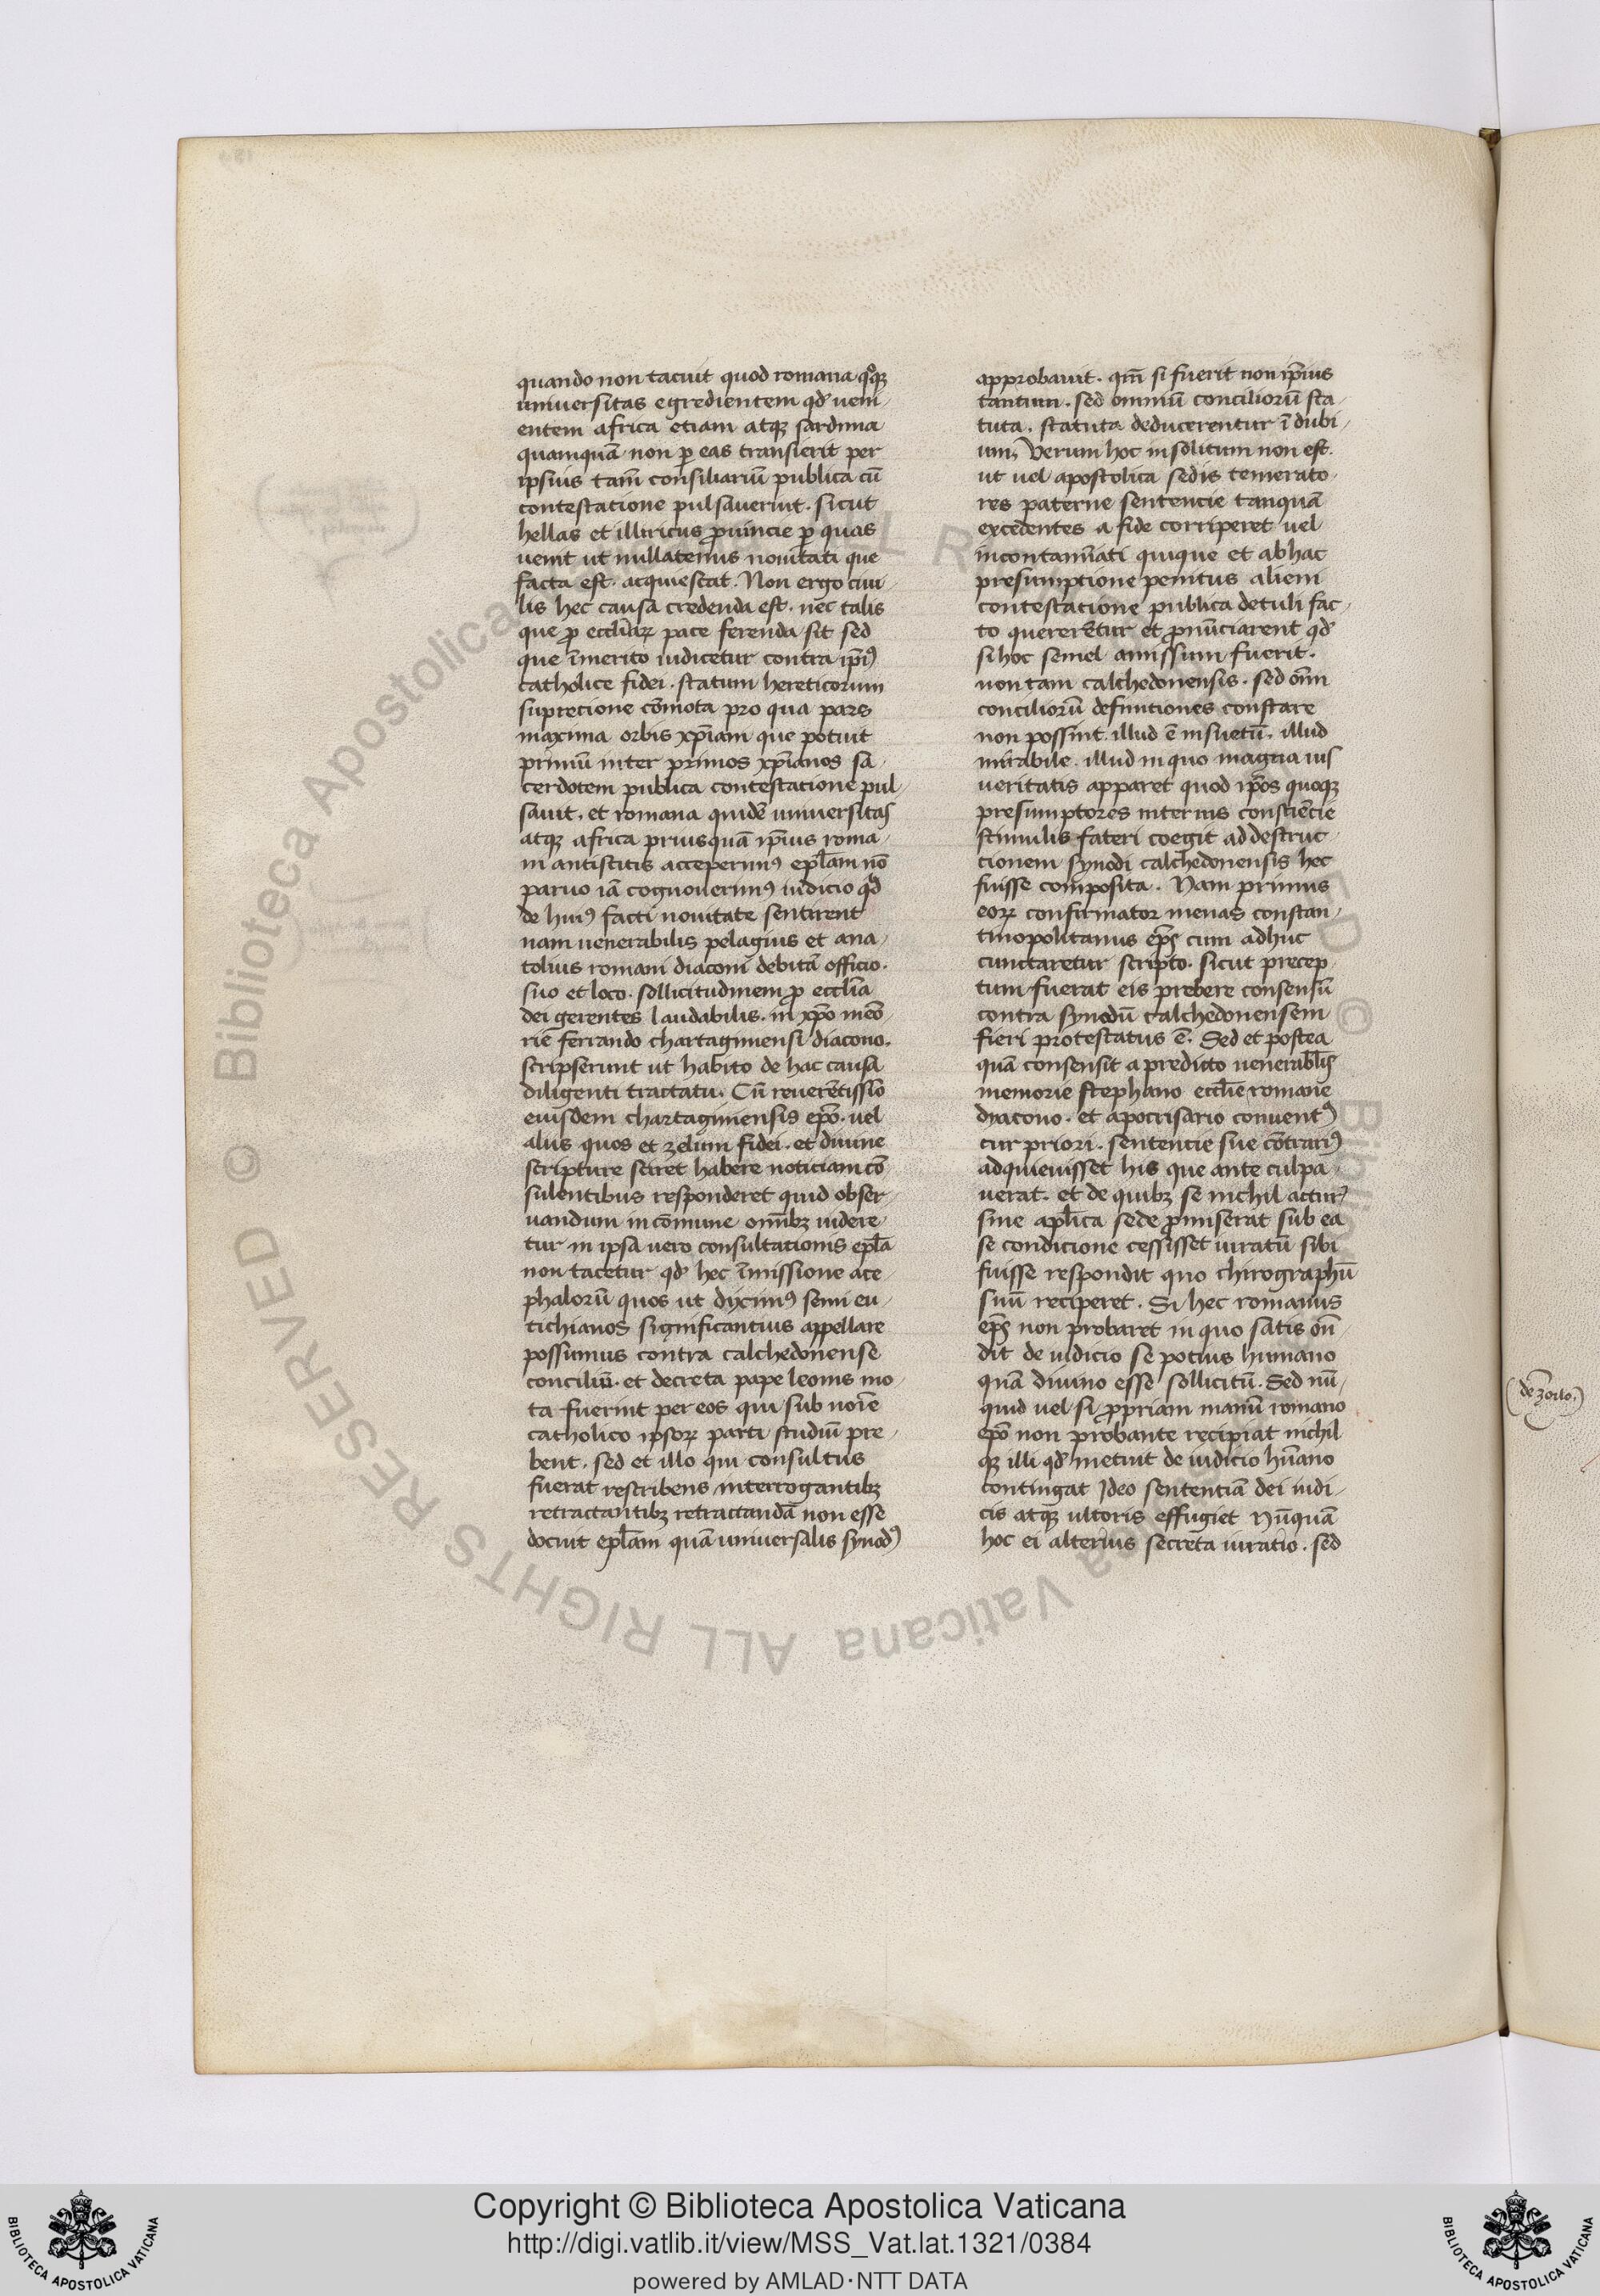 quando non tacuit quod romana qͦꝫ
uniuersitas egredientem qđ ueni
entem africa etiam atqꝫ sardinia
quamquā non ꝑ eas transierit per
ipsius tam̄ consiliariū publica cū
contestatione pulsauerint. sicut
hellas et illiricus ꝓuincie ꝑ quas
uenit ut nullatenus nouitati que
facta est. acquiescat. Non ergo ciui
lis hec causa credenda est. nec talis
que ꝓ eccl̄iaꝝ pace ferenda sit sed
que īmerito iudicetur contra ip̄iꝰ
catholice fidei. statum hereticorum
supretione cōmota pro qua pars
maxima orbis xp̄iani que potuit
primū inter primos xp̄ianos sa
cerdotem publica contestatione pul
sauit. et romana quidē uniuersitas
atqꝫ africa priusquā ip̄ius roma
ni antistitis acceperimꝰ epl̄am nō
paruo iā cognouerimꝰ iudicio qđ
de huiꝰ facti nouitate sentirent
nam uenerabilis pelagius et ana
tolius romani diaconi debitā officio.
suo et loco. sollicitudinem ꝓ eccl̄ia
dei gerentes laudabilis. in xp̄o meō
riē ferrando chartaginensi diacono.
scripserunt ut habito de hac causa
diligenti tractatu. Cū reuerētissīo
eiusdem chartaginensis ep̄o. uel
aliis quos et zelum fidei. et diuine
scripture sciret habere noticiam cō
sulentibus responderet quid obser
uandum in cōmune omībꝫ uidere
tur in ipsa uero consultationis epl̄a
non tacetur qđ hec īmissione ace
phalorū quos ut dyximꝰ semi eu
tichianos significantius appellare
possumus contra calchedonense
conciliū. et decreta pape leonis mo
ta fuerint per eos qui sub noīe
catholico ipsoꝝ parti studiū pre
bent. sed et illo qui consultus
fuerat rescribens interrogantibꝫ
retractantibꝫ retractandā non esse
docuit epl̄am quā uniuersalis synodꝰ
approbauit. qm̄ si fuerit non ip̄ius
tantum. sed omniū conciliorū sta
tuta. statuta deducerentur ī dubi
um, Verum hoc insolitum non est.
ut uel apostolica sedis temerato
res paterne sentencie tanquā
excedentes a fide corriperet uel
incontamīati quique et ab hac
presumptione penitus alieni
contestatione publica detuli fac
to quererētur et ꝓnūciarent qđ
si hoc semel amissum fuerit.
non tam calchedonensis. sed om̄n
conciliorū definitiones constare
non possint. illud ē insuetū. illud
mirabile. illud in quo magna uis
ueritatis apparet quod ip̄os quoqꝫ
presumptores internis consciēcie
stimulis fateri coegit ad destruc
tionem synodi calchedonensis hec
fuisse composita. Nam primus
eoꝝ confirmator menas constan
tinopolitanus ep̄s cum adhuc
cunctaretur scripto. sicut precep
tum fuerat eis prebere consensū
contra synodū calchedonensem
fieri protestatus ē. Sed et postea
quā consensit a predicto uenerabl̄is
memorie stephano eccl̄ie romane
dyacono. et apocrisario conuentꝰ
cur priori. sentencie sue cōtrariꝰ
adquieuisset his que ante culpa
uerat. et de quibꝫ se nichil acturꝰ
sine apl̄ica sede ꝓmiserat sub ea
se condicione cessisset iuratū sibi
fuisse respondit quo chirographū
suū reciperet. Si hec romanus
ep̄s non probaret in quo satis on̄
dit de iudicio se potius humano
quā diuino esse sollicitū. Sed nū
quid uel si ꝓpriam manū romano
ep̄o non probante recipiat nichil
qꝫ illi qđ metuit de iudicio hūano
contingat Ideo sententiā dei iudi
cis atqꝫ ultoris effugiet Nūquā
hoc ei alterius secreta iuratio. sed
de zoilo.
Copyright © Biblioteca Apostolica Vaticana
http://digi.vatlib.it/view/MSS_Vat.lat.1321/0384
powered by AMLAD·NTT DATA
BIBLIOTECA APOSTOLICA VATICANA
BIBLIOTECA APOSTOLICA VATICANA
© Biblioteca Apostolica Vaticana ALL RIGHTS RESERVED